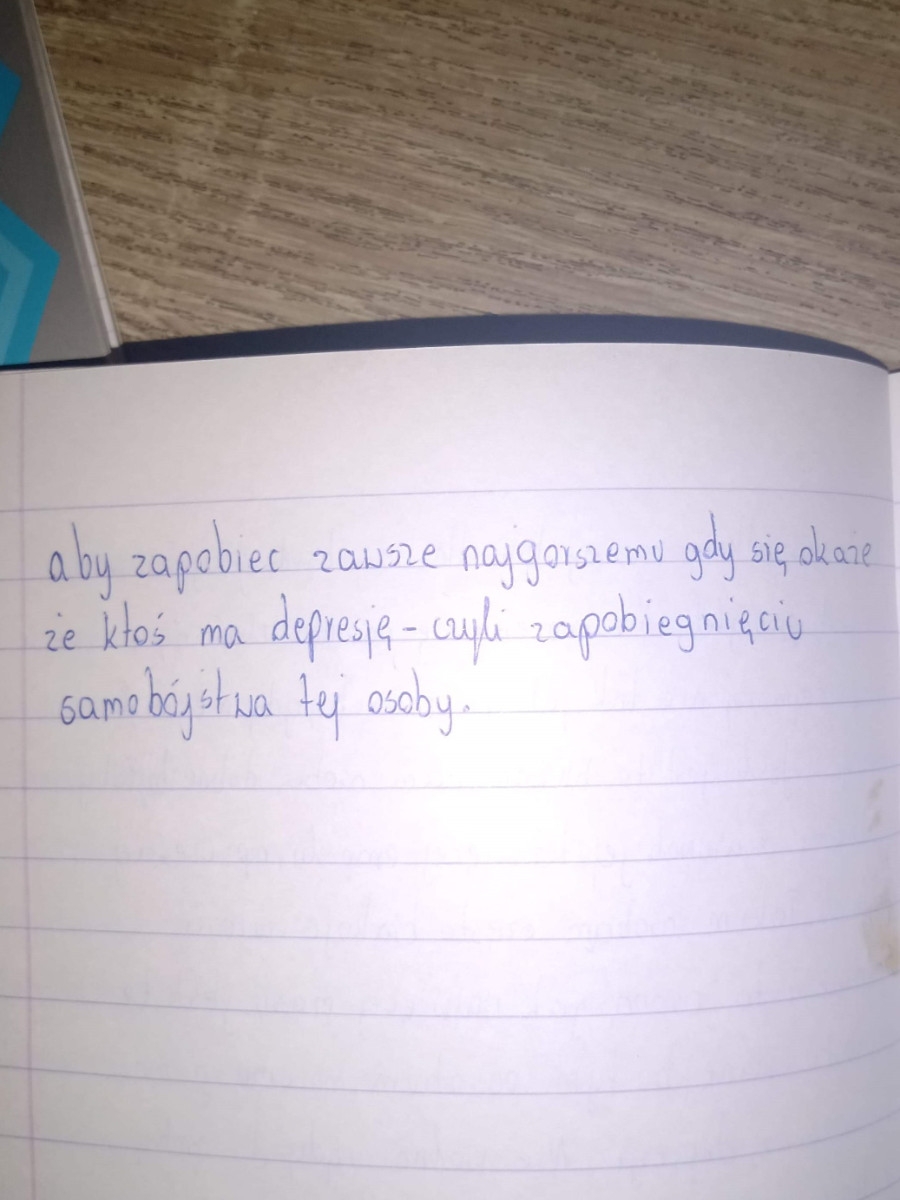 aby zapobiec zawsze najgorszemu gdy się okaże
że ktoś ma depresję - czyli zapobiegnięciu
samobójstwa tej osoby.